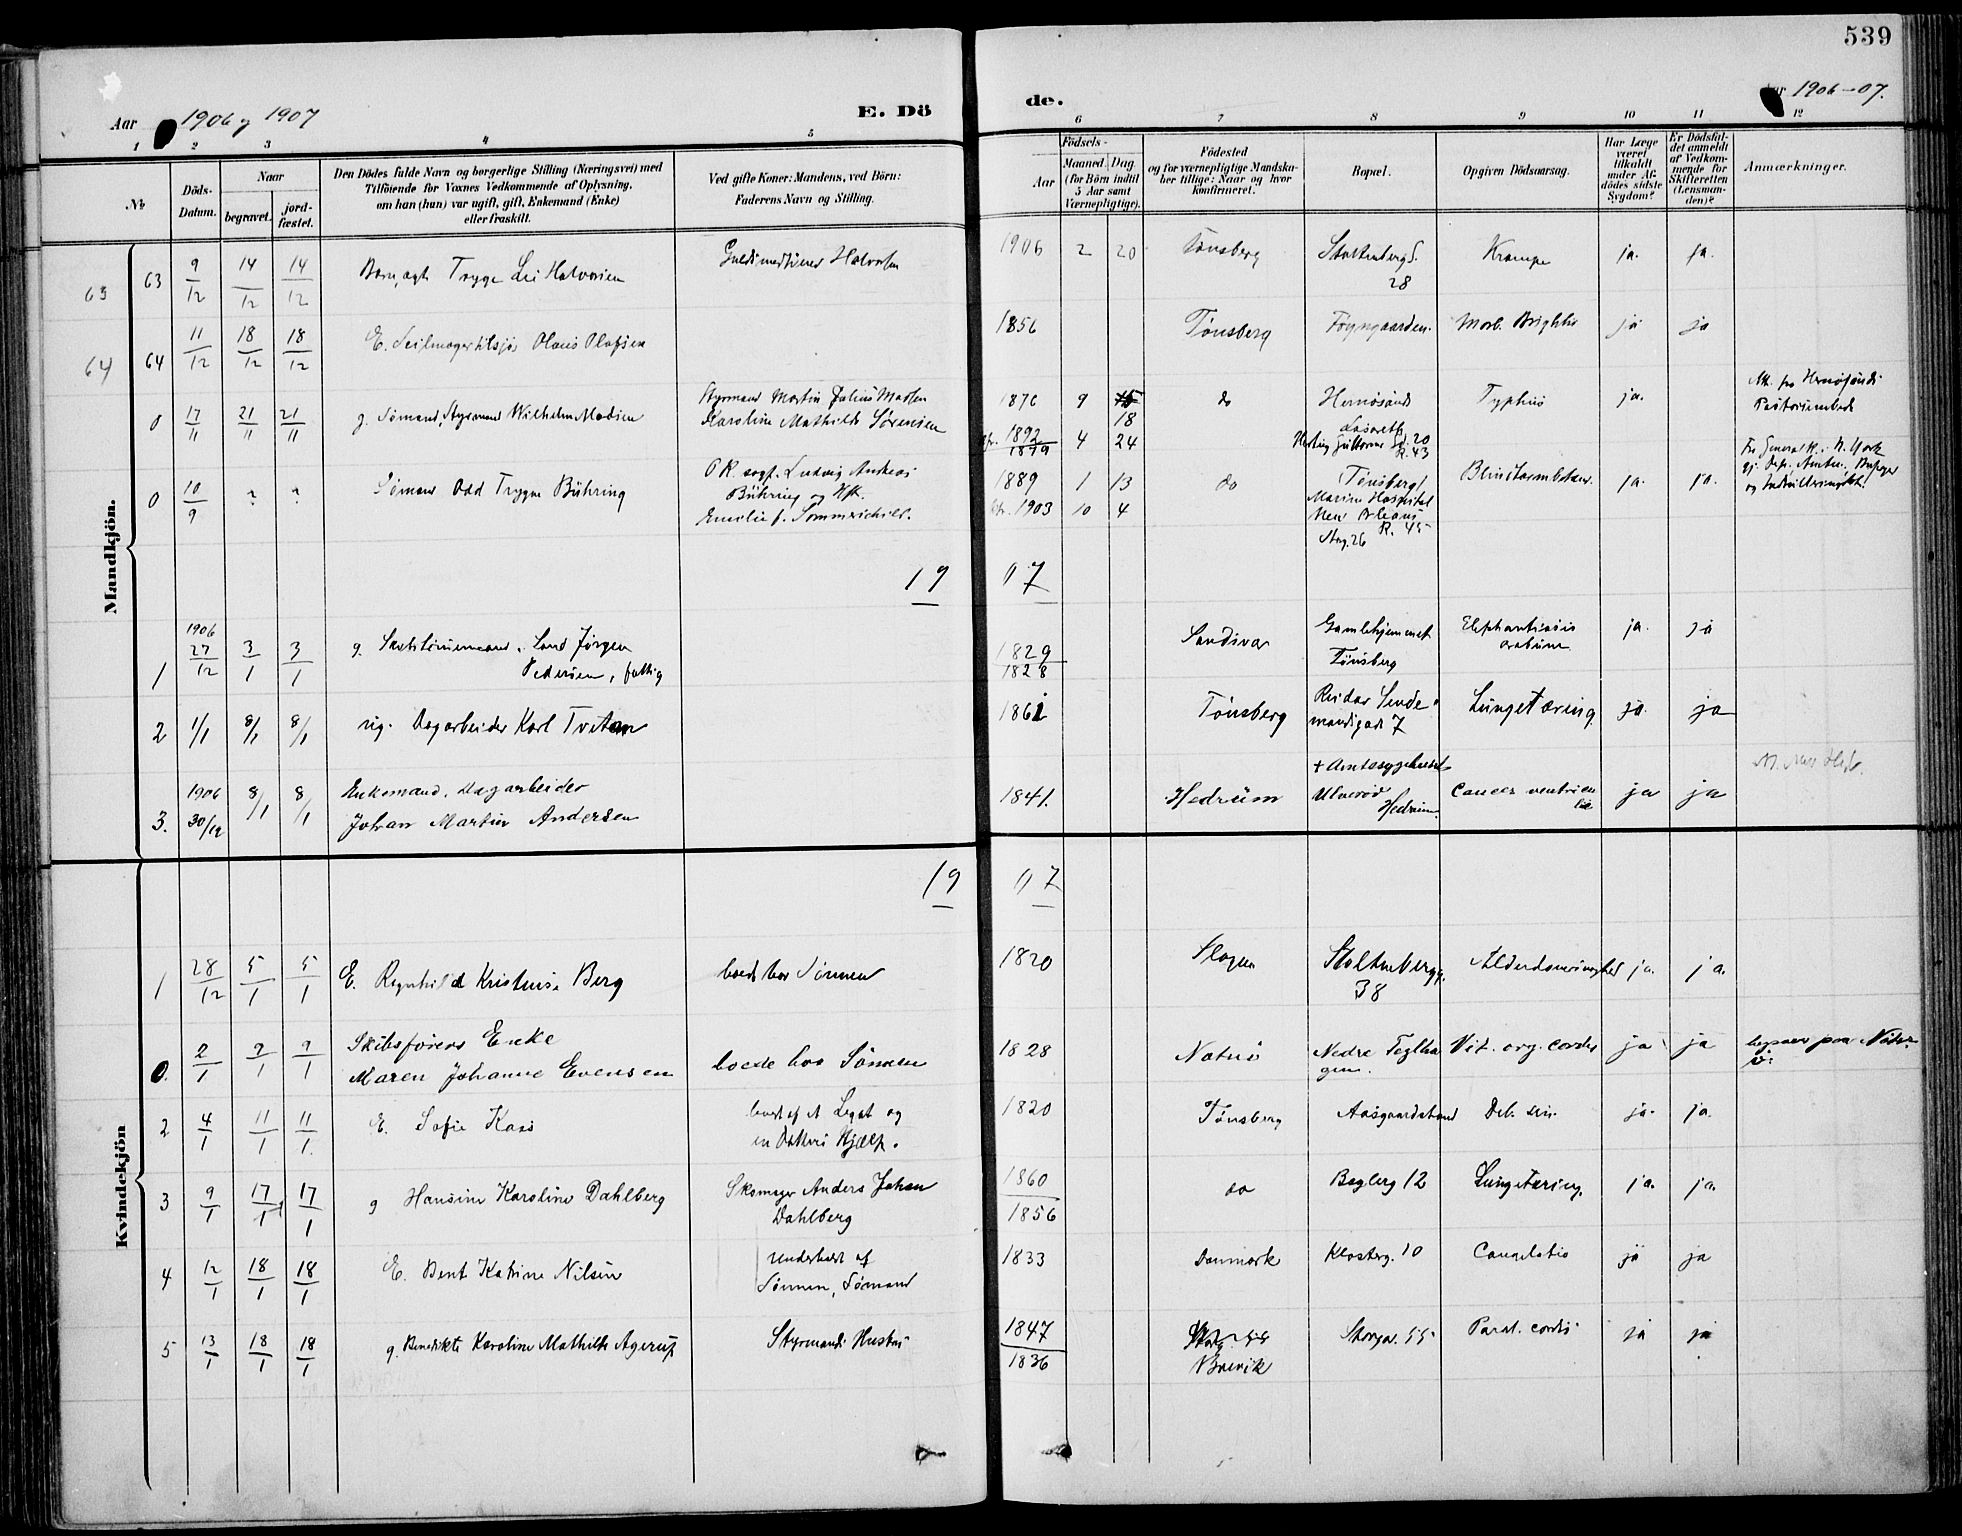 539
Aar 1906 og 1907
E. Dö
de.
Aar 1906-07.
1 2 3 4 5 6 7 8 9 10 11 12
№
Döds-
Datum.
Naar
begravet.
jord-
fæstet.
Den Dödes fulde Navn og borgerlige Stilling (Næringsvei) med
Tilföiende for Voxnes Vedkommende af Oplysning,
om han (hun) var ugift, gift, Enkemand (Enke)
eller fraskilt.
Ved gifte Koner: Mandens, ved Börn:
Faderens Navn og Stilling.
Födsels-
Aar
Maaned Dag
(for Börn indtil
5 Aar samt
Værnepligtige).
Födested
og for værnepligtige Mandska-
ber tillige: Naar og hvor
konfirmeret.
Bopæl.
Opgiven Dödsaarsag.
Har Læge
været
tilkaldt
under Af-
dödes sidste
Sygdom?
Er Dödsfal-
det anmeldt
af Vedkom-
mende for
Skifteretten
(Lensman-
den)?
Anmærkninger.
Mandkjön.
63 63 9/12 14/12 14/12 Barn, ægt Trygve Lei Halvorsen Guldsmedsvend Halvorsen 1906 2 20 Tønsberg Stoltenbergs. 28 Krampe ja. ja.
64 64 11/12 18/12 18/12 E. Seilmager Olaus Olafsen 1856 Tønsberg Foyngaarden. Morb. Brightii ja ja
0 17/11 21/11 21/11 g. Sømand, Styrmand Wilhelm Madsen
Styrmand Martin Julius Madsen
Karoline Mathilde Sørensen
1876 9 18 do Hernøsands Lasareth Typhus ja.
1892/1879 4 24
R. 43
Att. fra Hernøsands
Pastorsembede
0 10/9 ? ? Sømand Odd Trygve Bühring
Ludvig Andreas
Bühring og Hst.
Emilie f. Sommerschield.
1889 1 13 do Tønsberg/
Marine Hospital
New Orleans
Strg. 26 R. 45
ja. ja.
1903 10 4
Fra Generalk. i N. York
19 07
1 1906 27/12 3/1 3/1 g. Jørgen
Pedersen, fattig 1829/1828 Sandsvær Gamlehjemmet
Tønsberg Elephantiasis
arabum ja. ja
2 1/1 8/1 8/1 ug. Dagarbeider Karl Tveten 1861 Tønsberg Reidar Sende-
mandsgade 7 Lungetæring ja. ja
3. 1906 30/12 8/1 8/1 Enkemand, Dagarbeider
Johan Martin Andersen 1841. Hedrum + Amtssygehuset
Ulverød
Hedrum. Cancer ventriculi ja ja
Kvindekjön
19 07
1 28/12 5/1 5/1 E. Ragnhild Kristense Berg boede hos Sønnen 1820 Slagen Stoltenbergg. 38 Alderdomssvaghed ja. ja.
0. 2/1 9/1 9/1 Skibsførers Enke
Maren Johanne Evensen boede hos Sønnen 1828 Nøterø Nedre Teglha
gen. Vit. org. cordis ja ja begravet paa Nøter-
ö.
2 4/1 11/1 11/1 E. Sofie Kass levet af et Legat og
en Datters Hjælp. 1820 Tønsberg Aasgaardstrand Deb. sen. ja. ja.
3 9/1 17/1 17/1 g Hansine Karoline Dahlberg Skomager Anders Johan
Dahlberg 1860/1856 do Baglerg 12 Lungetæring. ja. ja.
4 12/1 18/1 18/1 E. Bent Katrine Nilsen Underholdt af
Sønnen, Sømand 1833 Danmark Klosterg. 10 ja ja
5 13/1 18/1 18/1 g. Benedikte Karoline Mathilde Agerup Styrmands Hustru 1847/1836 Brevik Storga. 55 Paral. cordis ja ja